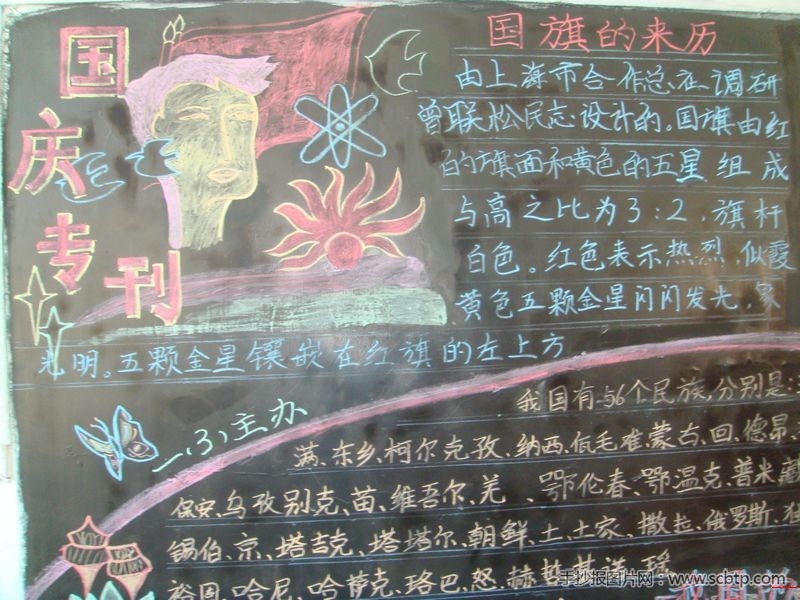 国庆专刊
国旗的来历
由上海市合作总社、调研
曾联松民志设计的。国旗由红
的旗面和黄色的五星组成
与高之比为3:2,旗杆
白色。红色表示热烈,似霞
黄色五颗金星闪闪发光,象
光明。五颗金星镶嵌在红旗的左上方
一(3)主办
我国有56个民族,分别是:
满、东乡、柯尔克孜、纳西、佤毛难蒙古、回、德昂、
保安、乌孜别克、苗、维吾尔、羌、鄂伦春、鄂温克、普米藏
锡伯、京、塔吉克、塔塔尔、朝鲜、土、土家、撒拉、俄罗斯、独
裕固、哈尼、哈萨克、珞巴、怒、赫哲
手抄报图片网:www.scbtp.com